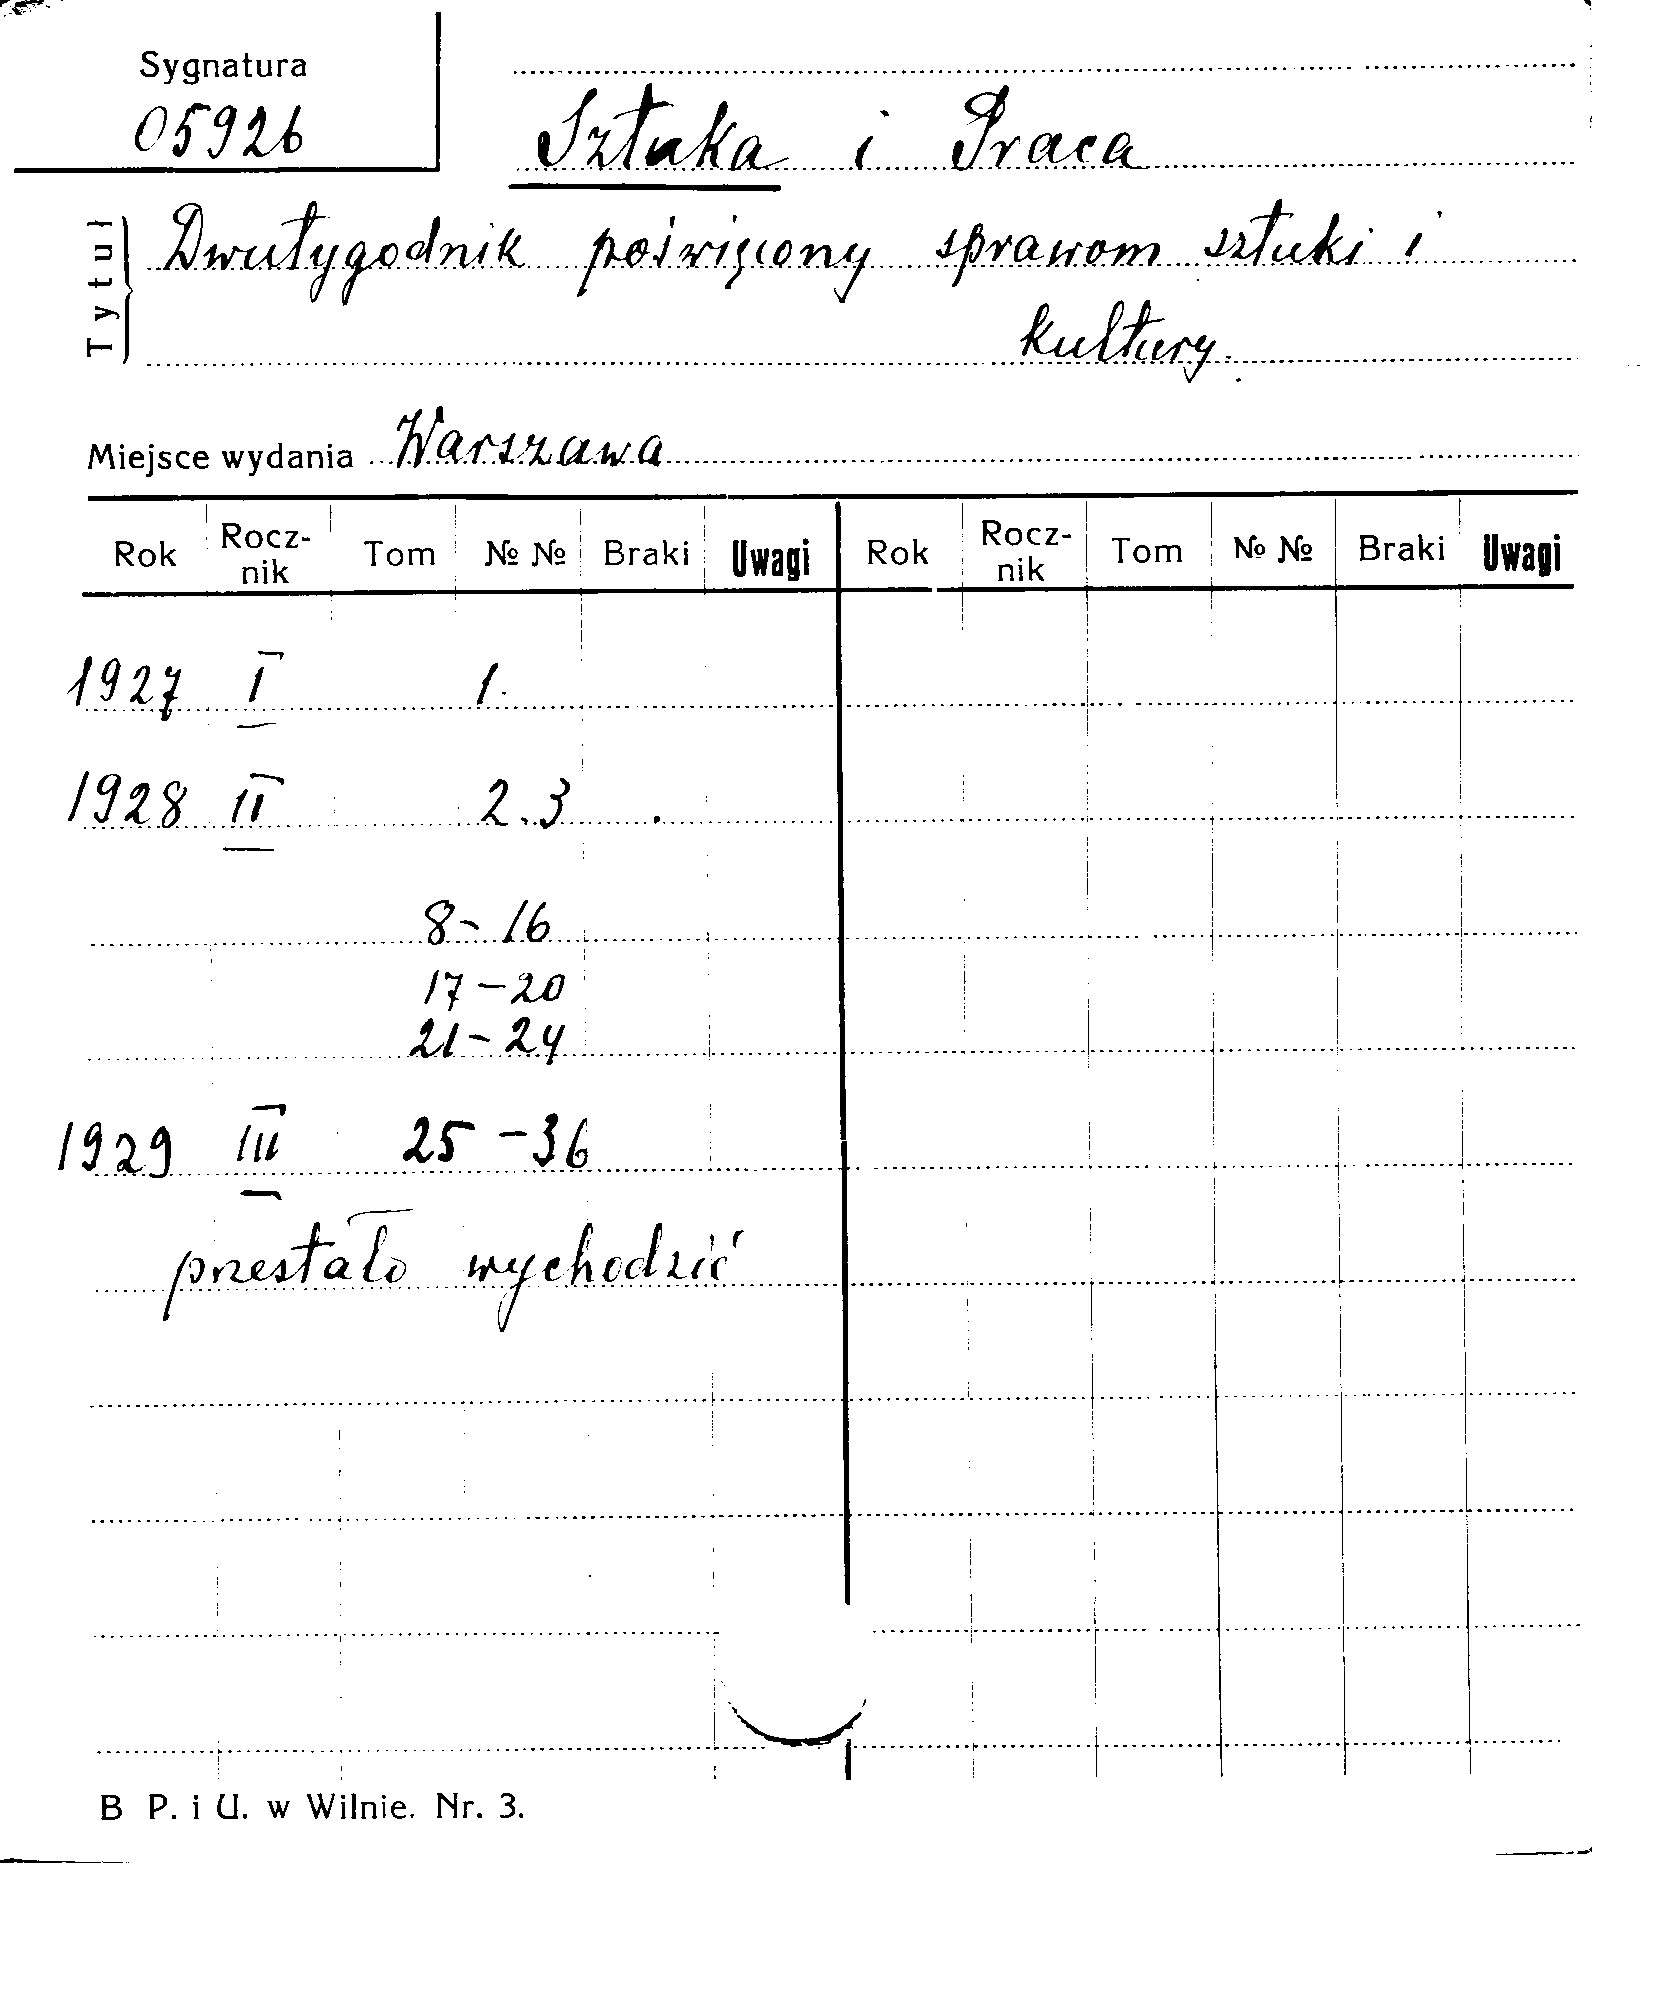 Sygnatura
05926
Sztuka i Praca
Tytuł
Dwutygodnik poświęcony sprawom sztuki i
kultury.
Miejsce wydania Warszawa
Rok Rocz-nik Tom № № Braki Uwagi Rok Rocz-nik Tom № № Braki Uwagi
1927 I 1.
1928 II 2.3
8-16
17-20
21-24
1929 III 25-36
przestało wychodzić
B P. i U. w Wilnie. Nr. 3.